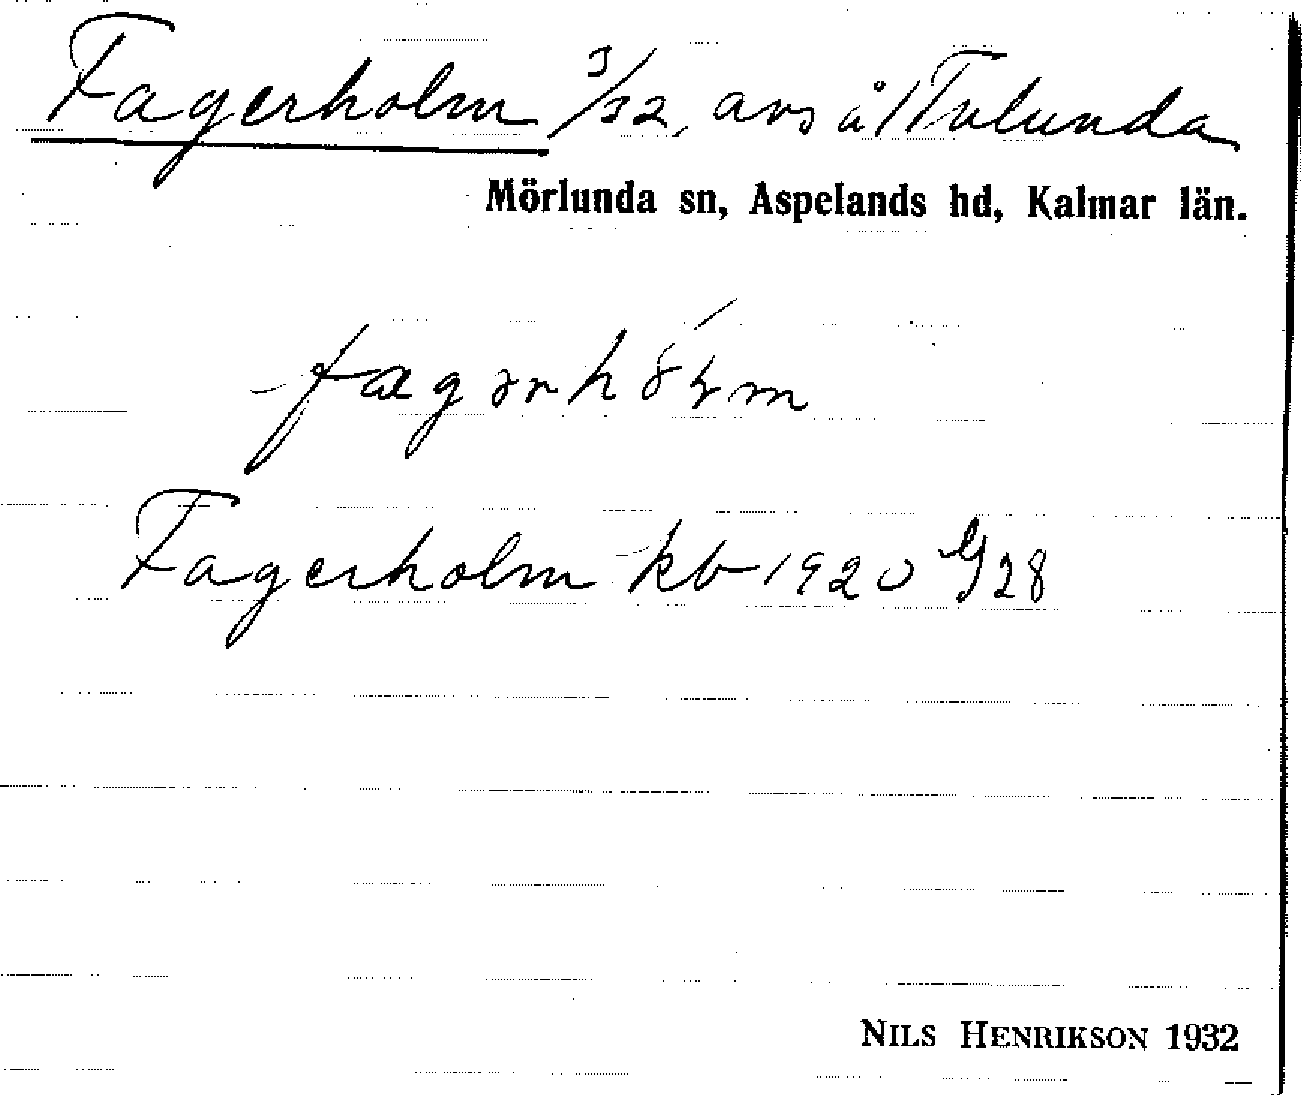 Fagerholm 3/32, avs å 1 Tulunda
Mörlunda sn, Aspelands hd, Kalmar län.
Fagerholm kb 1920
NILS HENRIKSON 1932